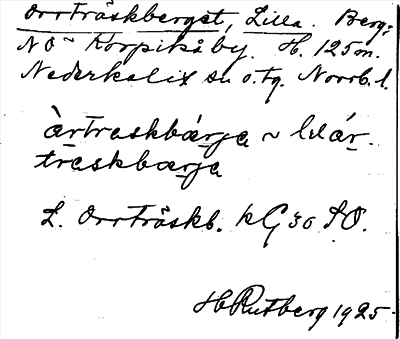 Orrträskberget, Lilla. Berg:
NO ~ Korpikå by. H. 125 m.
Nederkalix sn o. tg. Norrb. l.
àrtreskbárja ~ lılár-
treskbarja
L. Orrträskb. k G 30 SO.
H Rutberg 1925.